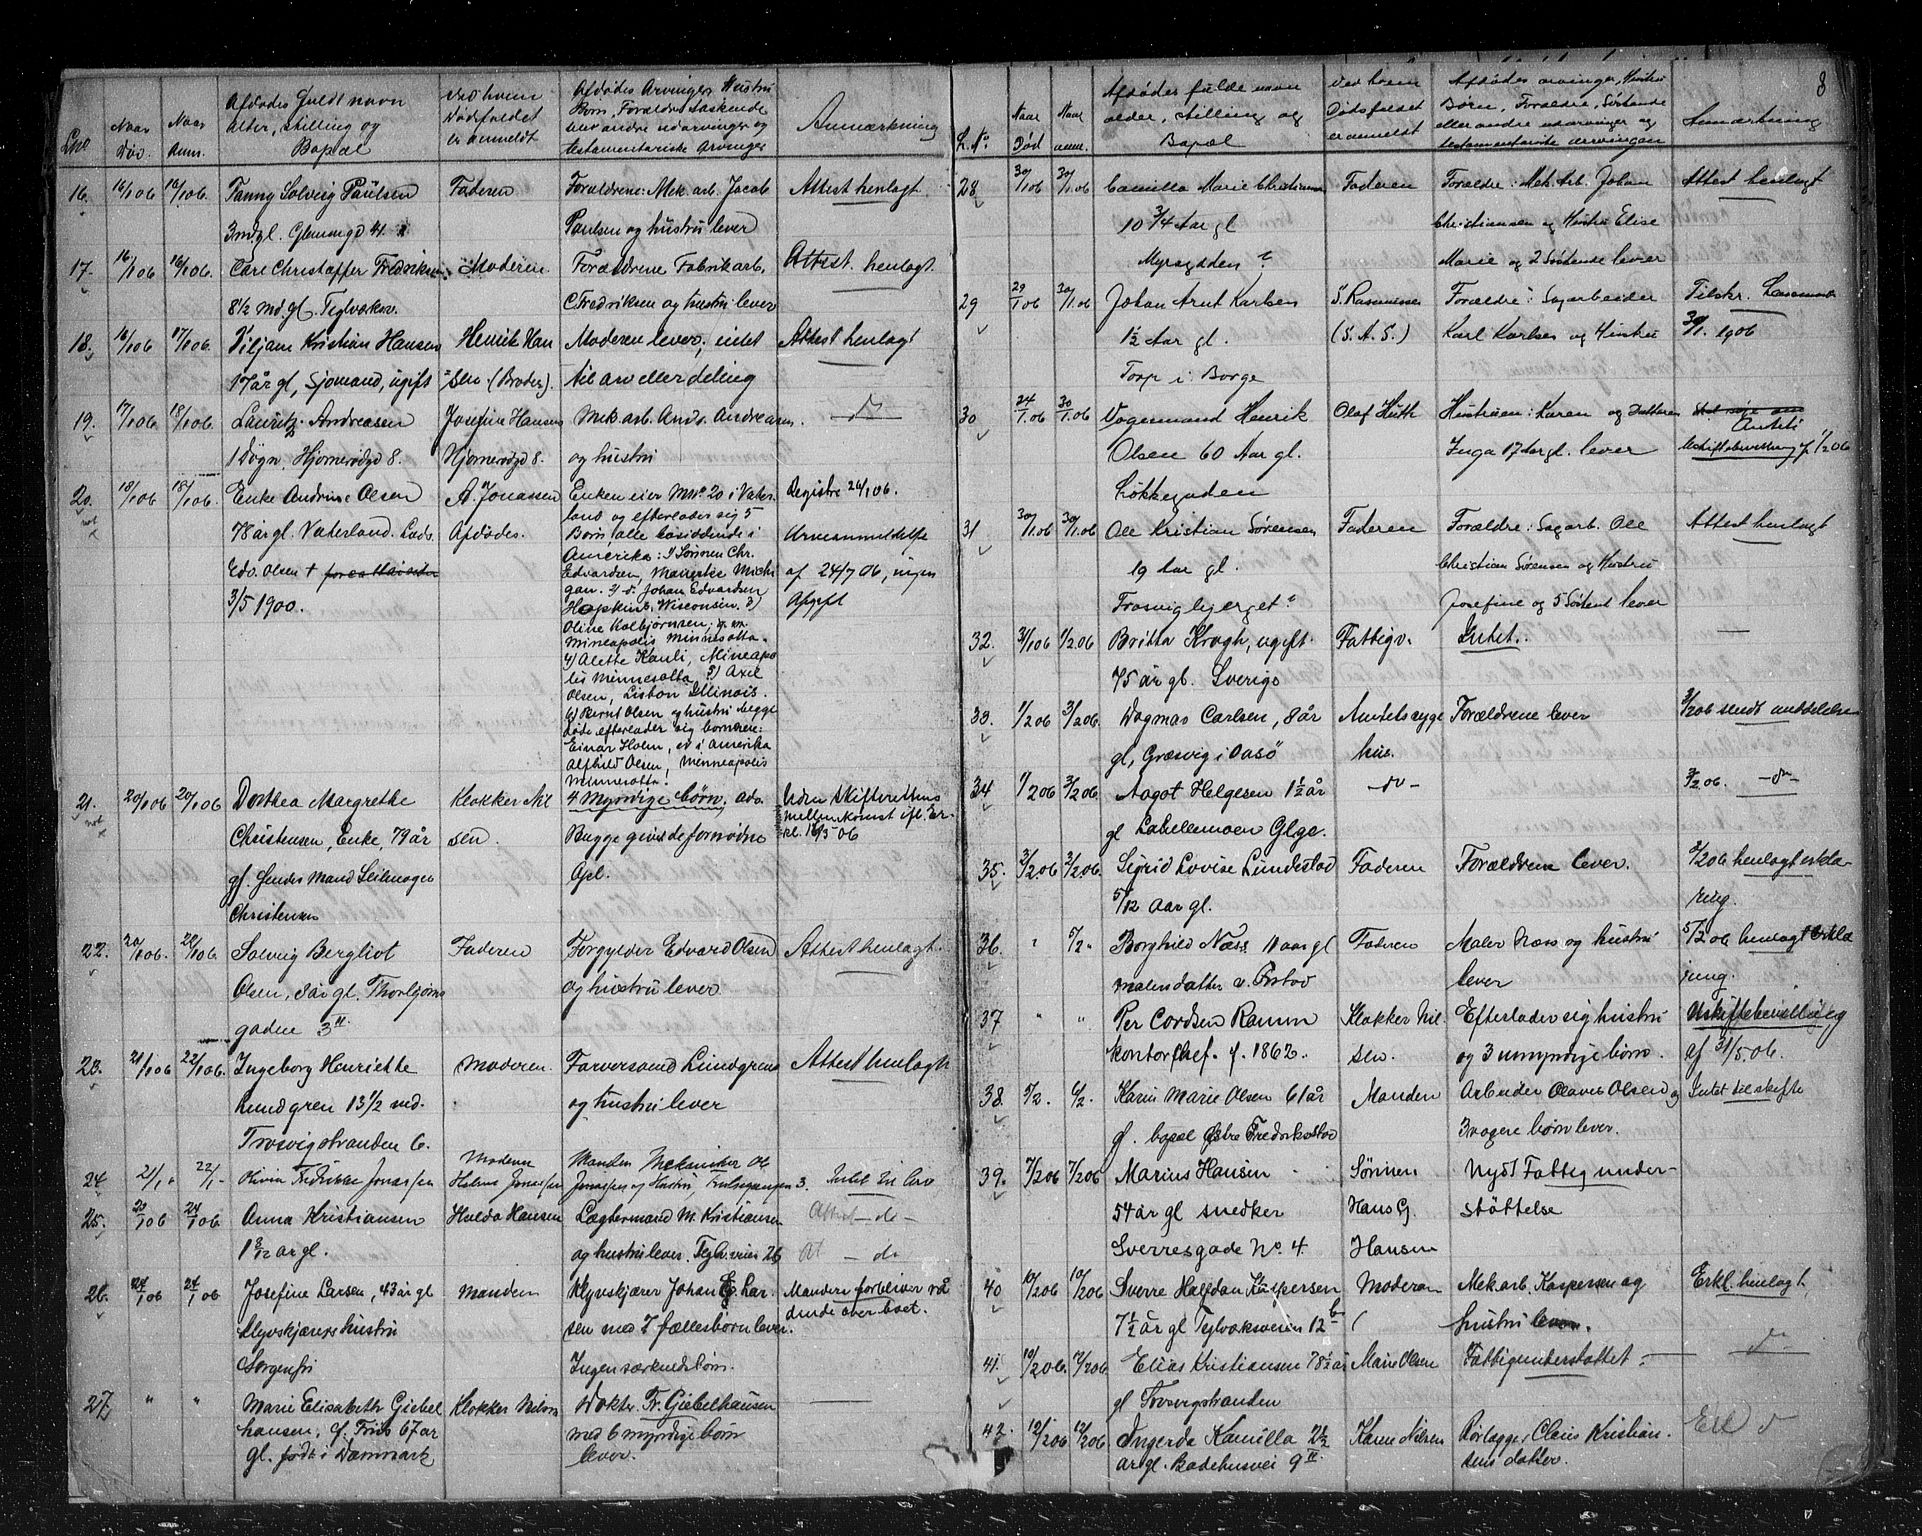 Lno
Naar
Død.
Naar
Anm.
Afdødes fuldt navn
alter, stilling og
Bopæl
Ved hvem
Dødsfaldet
er anmeldt
Afdødes Arvinger, Hustru
Børn, Forældre, søskende
eller andre udarvinger og
testamentariske Arvinger
Anmærkning
16. 16/1 06 16/1 06. Fanny Solveig Paulsen Faderen Forældrene: Mek. arb. Jacob Attest henlagt
3 md gl. Glemmengd 41. Paulsen og hustru lever
17. 16/1 06 16/1 06. Carl Christoffer Fredriksen Moderen Forældrene Fabrikarb. Attest henlagt.
8 1/2 md. gl. Teglværksv. C. Fredriksen og hustru lever
18. 16/1 06 17/1 06. Viljam Kristian Hansen Henrik Han Moderen lever, intet Attest henlagt
17 år gl, Sjomand, ugift sen (Broder). til arv eller deling
19. 17/1 06 18/1 06. Lauritz Andreasen Josefine Hansen Mek arb. Ands. Andreasen. — do —
1 Døgn, Hjornerødgd 8. Hjornerødgd 8. og hustru
20. 18/1 06 18/1 06. Enke Andrine Olsen A. Jonassen Enken eier Mno. 20 i Vater- Registre 26/1 06.
land og efterlader sig 5
78 år gl. Vaterland. Afdødes. Børn, alle bosiddende i Urneanmeldelse
Amerika: 1) Sønnen Chr.
Edv. Olsen + Edvardsen, Manestee Michi af 24/7 06, ingen
gan. 2) d. Johan Edvardsen
3/5 1900. Hopkins, Wisconsin. 3) Afgift
Oline Kolbjørnsen,
Mineapolis Minnesotta.
4) Alette Kauli, Mineapo
lis Minnesotta, 5) Axel
Olsen, Lisbon Illinois.
6) Bernt Olsen og hustru begge
døde efterlader sig børnene:
Einar Holm, er i Amerika
Alfhild Olsen, Minneapolis
Minnesotta!
21. 20/1 06 20/1 06 Dorthea Margrethe Klokker Nil 4 Myndige børn, adv. Uden Skifterettens
mellemkomst ifl. Er-
kl. 16/5 06
Christensen, Enke, 79 år sen. Bugge givet de fornødne
gl. Hendes Mand Seilmager Opl.
Christensen
22. 20/1 06. 20/1 06 Solveig Bergliot Faderen Forgylder Edvard Olsen Attest henlagt.
Olsen, 3 år gl. Thorbjørns og hustru lever
gaden 3 II.
23. 21/1 06 22/1 06. Ingeborg Henriette Moderen. Farversvend Lundgren Attest henlagt
Lundgren 13 1/2 md. og hustru lever
Trosvigstranden 6.
24. 21/1 " 22/1 " Fredrikke Jonassen Moderen Helene Jonassen Manden Mekaniker Ol.
Jonassen og Hustru, 3. Intet til Arv
25. 23/1 06 24/1 06 Anna Kristiansen Hulda Hansen Lægtermand M. Kristiansen Attest — do —
1 3/12 år gl. og hustru lever. Teglv. veien 26 At — do
26. 24/1 06 24/1 06 Josefine Larsen, 43 år gl Manden Klyvskjærer Johan E. Lar- Manden forbliver rå
sen med 7 fællesbørn lever. dende over boet.
Klyvskjærers hustru
Sorgenfri Ingen særkuldsbørn.
27. " " Marie Elisabeth Giebel Klokker Nilsen Doktor Fr. Giebelhausen ——
hausen, f. Friis 67 år med 6 myndige børn
gl. født i Danmark lever.
8
L. No.
Naar
Død
Naar
anm.
Afdødes fulde navn
alder, stilling og
Bopæl
Ved hvem
Dødsfaldet
er anmeldt
Afdødes arvinger, Hustru
Børn, Forældre, Søskende
eller andre udarvinger og
testamentariske arvinger
Anmærkning
28. 30/1 06 30/1 06. Camilla Marie Christiansen Faderen Forældre: Mek. Arb. Johan Attest henlagt
10 3/4 Aar gl Christiansen og Hustru Elise
Myragaden ? Marie og 2 Søskende lever
29 29/1 06 30/1 06 Johan Arnt Karlsen S. Rasmussen Forældre: Sagarbeider Tilskr. Lensmand
1 1/2 Aar gl. (S. A. S.) Karl Karlsen og Hustru 30/1. 1906
Torp i Borge
30 24/1 06 30/1 06. Vognmand Henrik Olaf Huth Hustruen: Karen og Datteren
Olsen 60 Aar gl. Inga 17 Aar gl. lever Uskiftebevilling af 1/2 06
Løkkegaden
31 30/1 06 30/1 06. Ole Kristian Sørensen Faderen Forældre: Sagarb. Ole Attest henlagt
19 Aar gl. Christian Sørensen og Hustru
Trosvigbjerget ? Josefine og 5 Søskend lever
32. 31/1 06 1/2 06 Britta Krogh, ugift Fattigv. Intet. —
75 år gl. Sverige
33. 1/2 06 3/2 06. Dagmar Carlsen, 8 år Amtets syge Forældrene lever 3/2 06 sendt anmeldelse
gl, Græsvig i Onsø hus.
34 1/2 06 3/2 06. Aagot Helgesen 1 1/2 år — do — 3/2 06. — do —
gl Labellemoen Glge.
35. 3/2 06. 3/2 06. Sigrid Lovise Lundestad Faderen Forældrene lever. 3/2 06 henlagt erklæ-
5/12 aar gl. ring.
36. " 5/2 " Borghild Næss 11 aar gl Faderen Maler Næss og hustru 5/2 06 henlagt erklæ
malers datter lever ring.
37 " " Per Cordsen Ramm Klokker Nil- Efterlader sig hustru Uskiftebevilling
kontorchef. f. 1862. sen. og 3 umyndige børn. af 31/5. 06.
38. 5/2. 6/2. Karen Marie Olsen 61 år Manden Arbeider Olaves Olsen og Intet til skifte
gl. bopæl Østre Fredrikstad 3 vogsne børn lever.
39. 7/2 06 7/2 06 Marius Hansen Sønnen Nydt Fattigunder-
54 år gl snedker Hans G. støttelse
Sverresgade No. 4. Hansen
40 10/2 06 10/2 06 Sverre Halfdan Kaspersen Moderen Mek arb. Kaspersen og Erkl. henlagt
7 1/2 år gl Teglværksveien 12 b hustru lever.
41. 10/2 06. 12/2 06 Elias Kristiansen 78 1/2 år Marie Olsen Fattigunderstøttet. — do —
gl Trosvigstranden
42. 12/2 06 12/2 06. Ingerda Kamilla 2 1/2 Karen Nilsen Rørlægger Claus Kristian- Erkl do
år gl. Badehusvei 9 II. sens datter.